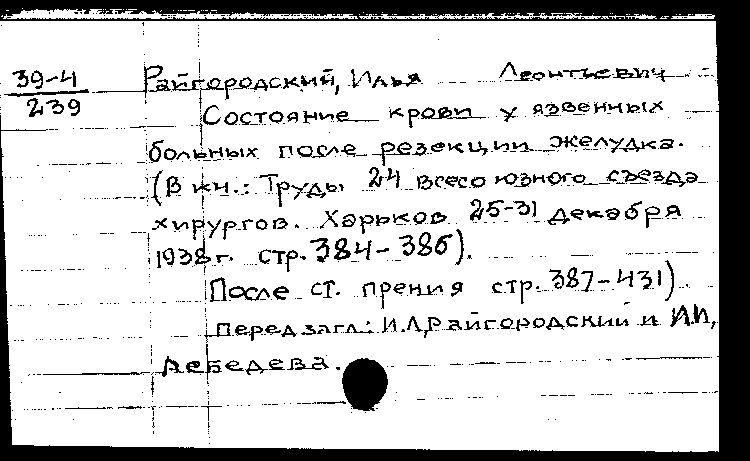 39-4
239
Райгородский, Илья Леонтьевич
Состояние крови у язвенных
больных после резекции желудка.
(В кн.: Труды 24 всесоюзного съезда
хирургов. Харьков 25-31 декабря
1938 г. стр. 384-386).
После ст. прения стр. 387-431)
перед загл.: И.Л. Райгородский и И.И.
Лебедева.